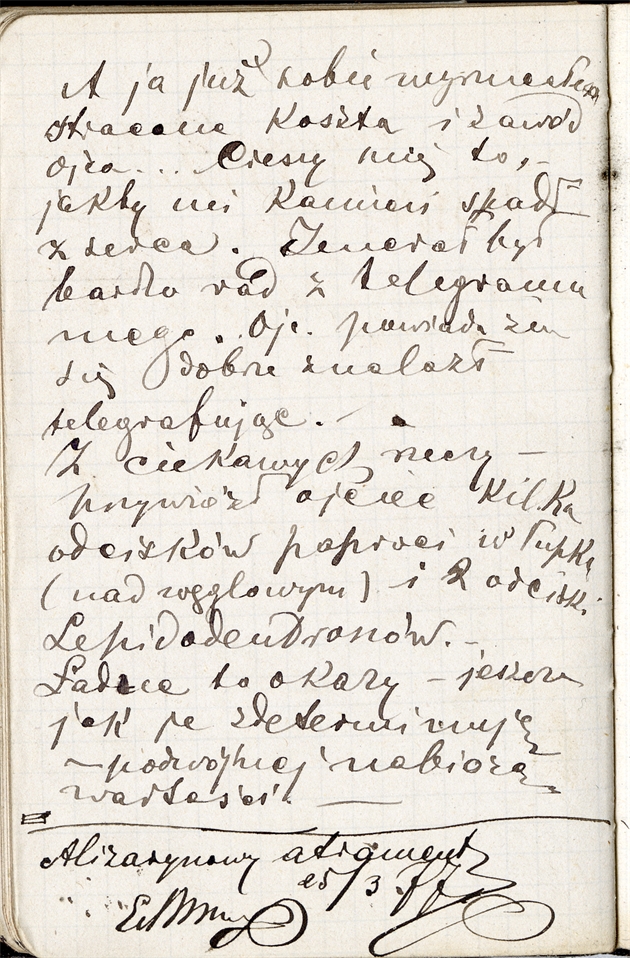 A ja już sobie
stracone koszta i zawód
ojca... Cieszy mię to,-
jakby mi kamień spadł
z serca. Jenerał był
bardzo rad z telegramu
mego. Ojc. powiada żem
się dobrze znalazł
telegrafując. —
Z ciekawych rzeczy —
przywiózł ojciec kilka
odcisków paproci w łupku
(nadwęglowym) i 2 odciski
Lepidodendronów. —
Ładne to okazy — jeszcze
jak je zdeterminuję
— podwójnej nabiorą
wartości. —
Alizarynowy atrament
25/3